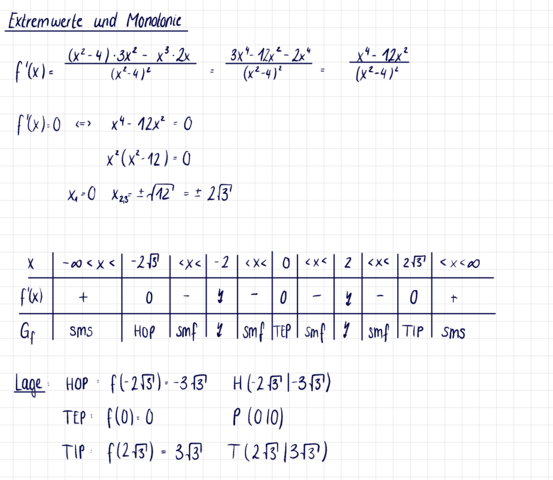 Extremwerte und Monotonie
f'(x) = ((x²-4)·3x² - x³·2x)/(x²-4)² = (3x⁴-12x²-2x⁴)/(x²-4)² = (x⁴-12x²)/(x²-4)²
f'(x)=0 <=> x⁴-12x² = 0
x²(x²-12) = 0
x₁=0 x₂,₃= ±√12 = ± 2√3
x | -∞ < x < | -2√3 | <x< | -2 | <x< | 0 | <x< | 2 | <x< | 2√3 | < x < ∞
f'(x) | + | 0 | - | | - | 0 | - | | - | 0 | +
Gf | sms | HOP | smf | | smf | TEP | smf | | smf | TIP | sms
Lage: HOP: f(-2√3) = -3√3 H(-2√3|-3√3)
TEP: f(0)=0 P(0|0)
TIP: f(2√3) = 3√3 T(2√3|3√3)